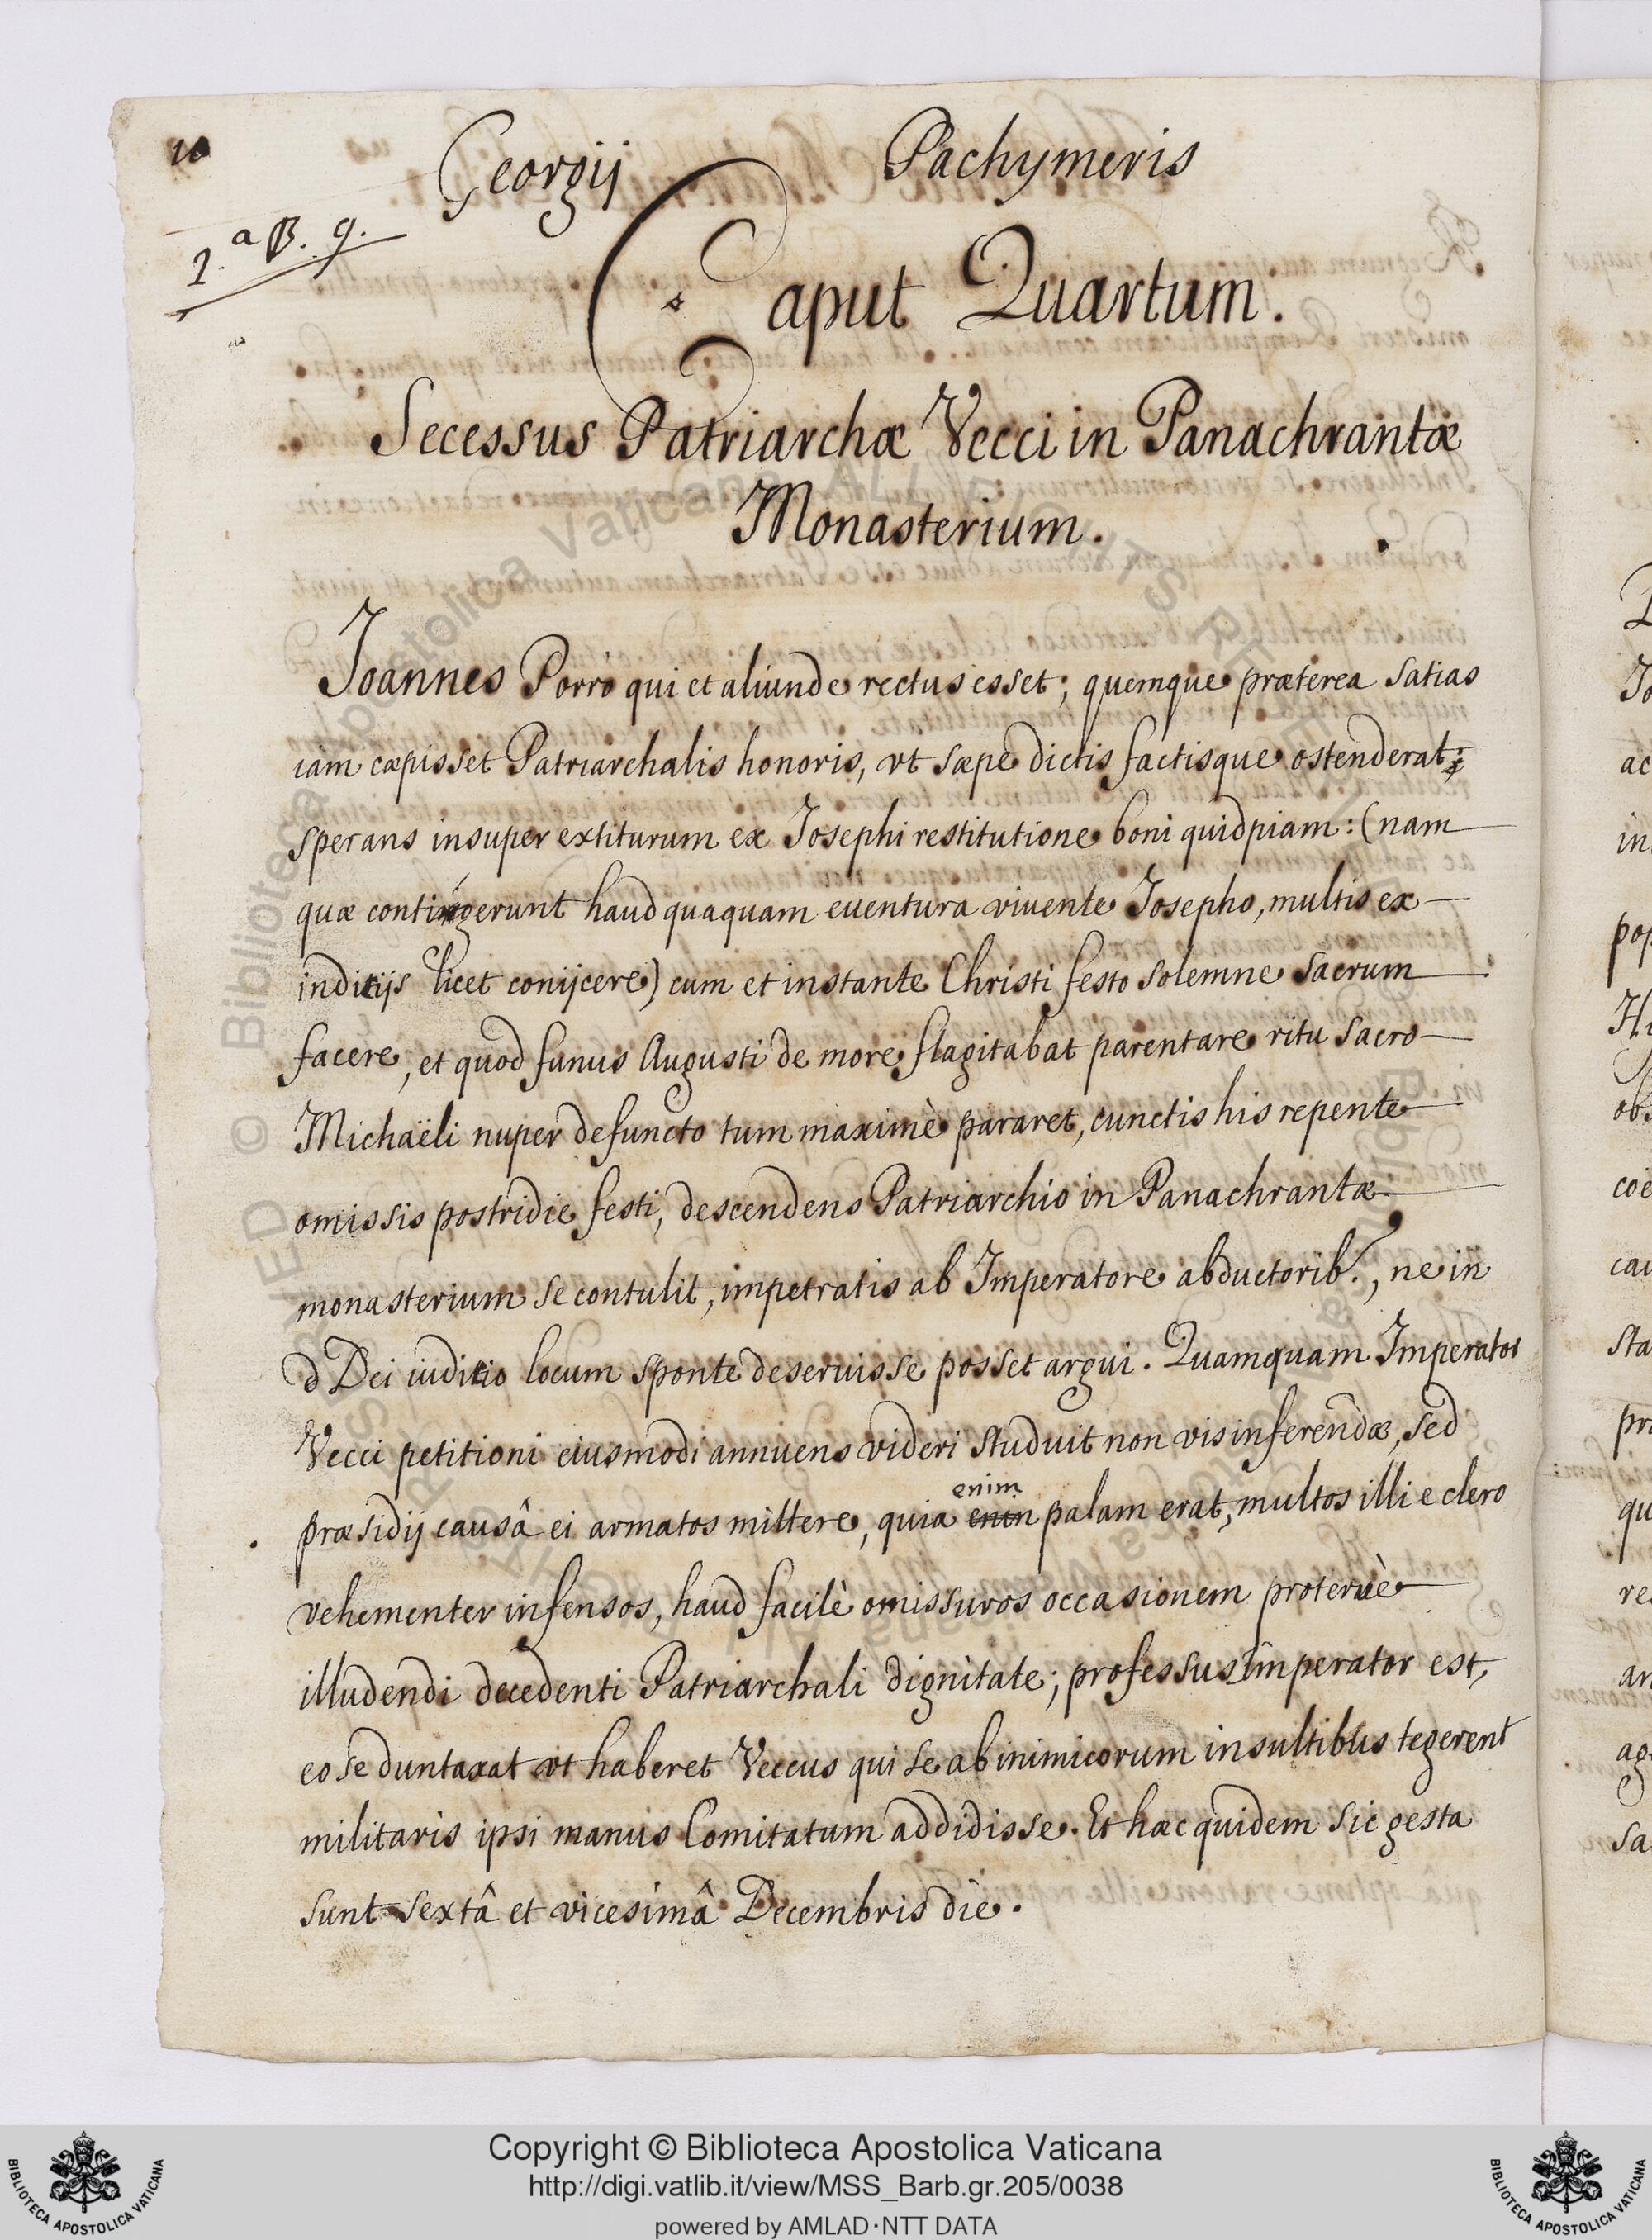 10
Georgij Pachymeris
1.a B. 9.
Caput Quartum.
Secessus Patriarchæ Vecci in Panachrantæ
Monasterium.
Joannes Porrò qui et aliunde rectus esset; quemque præterea satias
iam cæpisset Patriarchalis honoris, vt sæpe dictis factisque ostenderat;
sperans insuper extiturum ex Josephi restitutione boni quidpiam: (nam
quæ contigerunt haud quaquam euentura viuente Josepho, multis ex
inditijs licet conijcere) cum et instante Christi festo solemne sacrum
facere, et quod funus Augusti de more flagitabat parentare ritu sacro
Michaëli nuper defuncto tum maximè pararet, cunctis his repente
omissis postridie festi, descendens Patriarchio in Panachrantæ
monasterium se contulit, impetratis ab Imperatore abductorib., ne in
d Dei iuditio locum sponte deseruisse posset argui. Quamquam Imperator
Vecci petitioni eiusmodi annuens videri studuit non vis inferendæ, sed
præsidij causâ ei armatos mittere, quia enim palam erat, multos illi e clero
vehementer infensos, haud facilè omissuros occasionem proteruè
illudendi decedenti Patriarchali dignitate; professus imperator est,
eo se duntaxat vt haberet Veccus qui se ab inimicorum insultibus tegerent
militaris ipsi manus Comitatum addidisse. Et hæc quidem sic gesta
sunt sextâ et vicesimâ Decembris die.
Copyright © Biblioteca Apostolica Vaticana
http://digi.vatlib.it/view/MSS_Barb.gr.205/0038
powered by AMLAD·NTT DATA
BIBLIOTECA APOSTOLICA VATICANA
BIBLIOTECA APOSTOLICA VATICANA